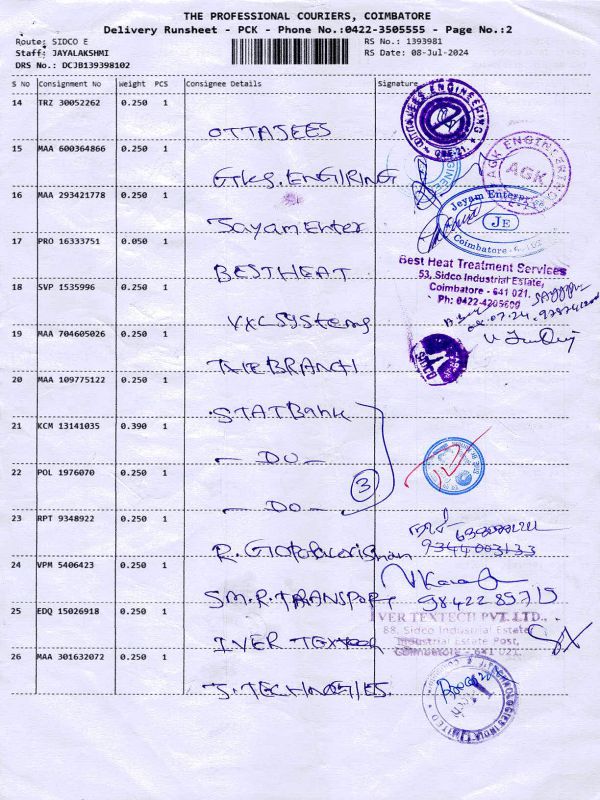 THE PROFESSIONAL COURIERS, COIMBATORE
Delivery Runsheet - PCK - Phone No.:0422-3505555 - Page No.:2
Route: SIDCO E
RS No.: 1393981
Staff: JAYALAKSHMI
RS Date: 08-Jul-2024
DRS No.: DCJB139398102
S No Consignment No Weight PCS Consignee Details Signature
14 TRZ 30052262 0.250 1
OTTAJEES
OTTAJEES ENGINEERING
CBE-21.
15 MAA 600364866 0.250 1
ENGIRING
AGK ENGINEERING
AGK
16 MAA 293421778 0.250 1
Jayam Enter
Jeyam Enterprises
JE
Coimbatore
17 PRO 16333751 0.050 1
BEST HEAT
Best Heat Treatment Services
53, Sidco Industrial Estate,
Coimbatore - 641 021.
Ph: 0422-4205600
18 SVP 1535996 0.250 1
VXL Systems
19 MAA 704605026 0.250 1
THE BRANCH
SIDCO
20 MAA 109775122 0.250 1
STAT Bank
21 KCM 13141035 0.390 1
- DO -
3
22 POL 1976070 0.250 1
- DO -
23 RPT 9348922 0.250 1
R. Gopalakrishnan
9344003133
24 VPM 5406423 0.250 1
SM.R. TRANSPORT
9842285715
25 EDQ 15026918 0.250 1
IVER TEXTECH
IVER TEXTECH PVT. LTD.,
88, Sidco Industrial Estate
Industrial Estate Post,
Coimbatore - 641 021.
26 MAA 301632072 0.250 1
J. TECHNOLOGIES.
TECHNOLOGIES INDIA LIMITED